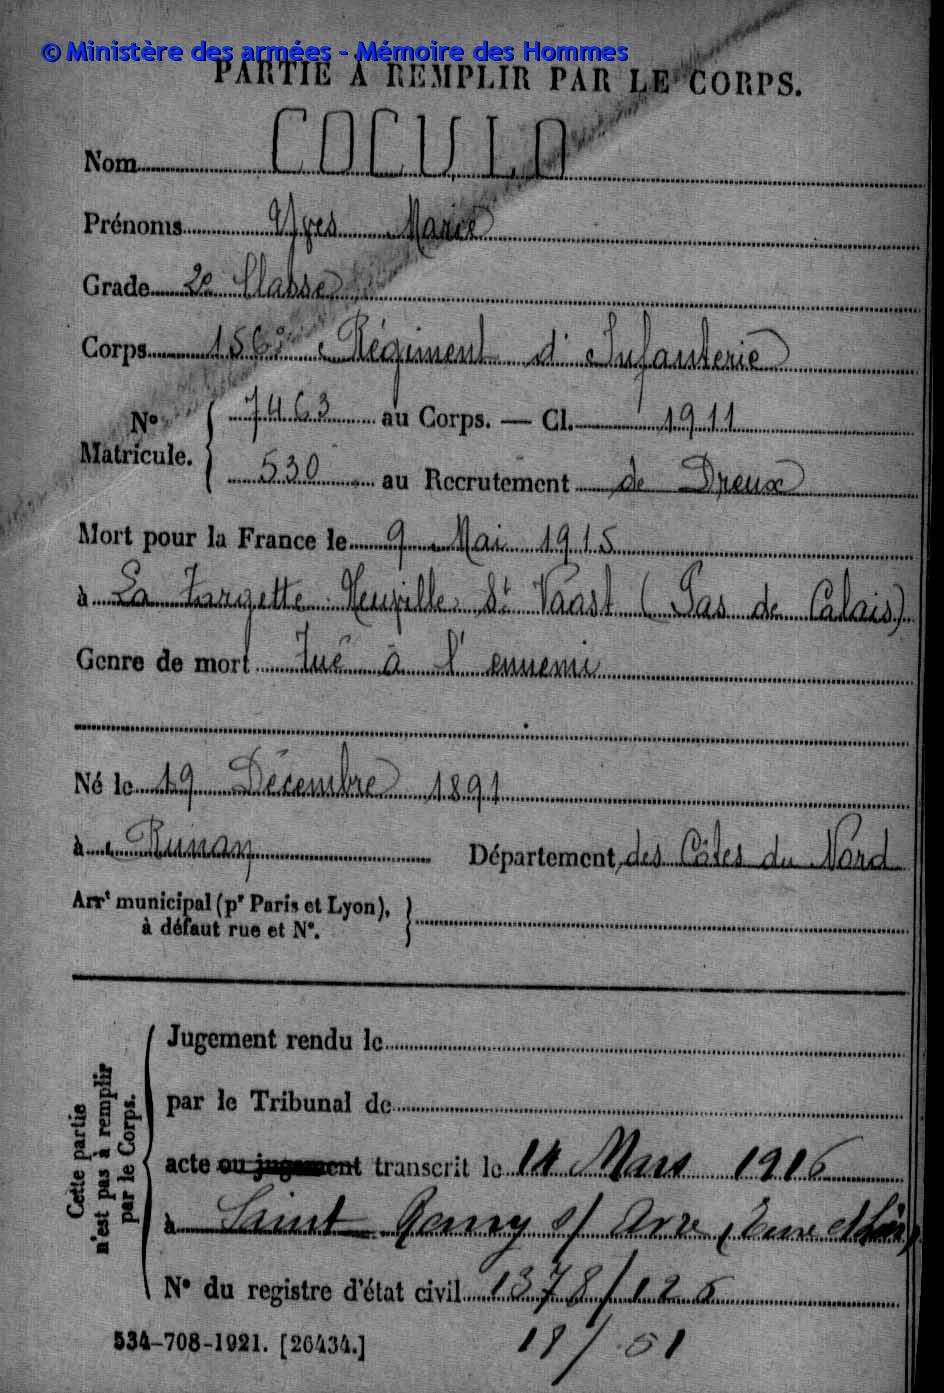 © Ministère des armées - Mémoire des Hommes
PARTIE À REMPLIR PAR LE CORPS.
Nom COCULO
Prénoms Yves Marie
Grade 2e Classe
Corps 156e Régiment d'Infanterie
N° Matricule. { 7463 au Corps. — Cl. 1911
530 au Recrutement de Dreux
Mort pour la France le 9 Mai 1915
à La Targette Neuville St Vaast (Pas de Calais)
Genre de mort Tué à l'ennemi
Né le 19 Décembre 1891
à Runan Département des Côtes du Nord
Arrt municipal (pr Paris et Lyon), }
à défaut rue et N°.
Cette partie n'est pas à remplir par le Corps.
Jugement rendu le
par le Tribunal de
acte ou jugement transcrit le 14 Mars 1916
à Saint Remy s/ Avre (Eure et Loir)
N° du registre d'état civil 1378/126
534-708-1921. [26434.]